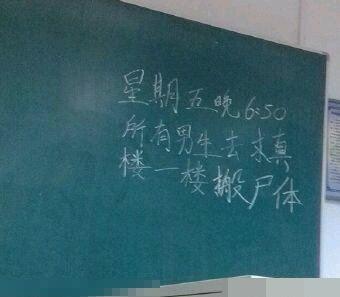 星期五晚6:50
所有男生去求真
楼一楼搬尸体